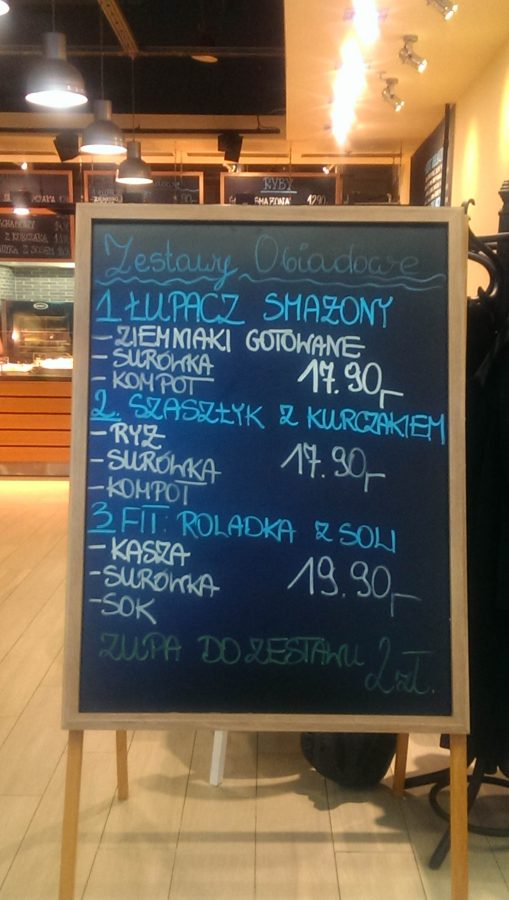 RYBY
SMAŻONA
Zestawy Obiadowe
1 ŁUPACZ SMAŻONY
- ZIEMNIAKI GOTOWANE
- SURÓWKA
- KOMPOT 17.90,-
2. SZASZŁYK Z KURCZAKIEM
- RYŻ
- SURÓWKA 17.90,-
- KOMPOT
3 FIT: ROLADKA Z SOLI
- KASZA
- SURÓWKA 19.90,-
- SOK
ZUPA DO ZESTAWU 2 zł.